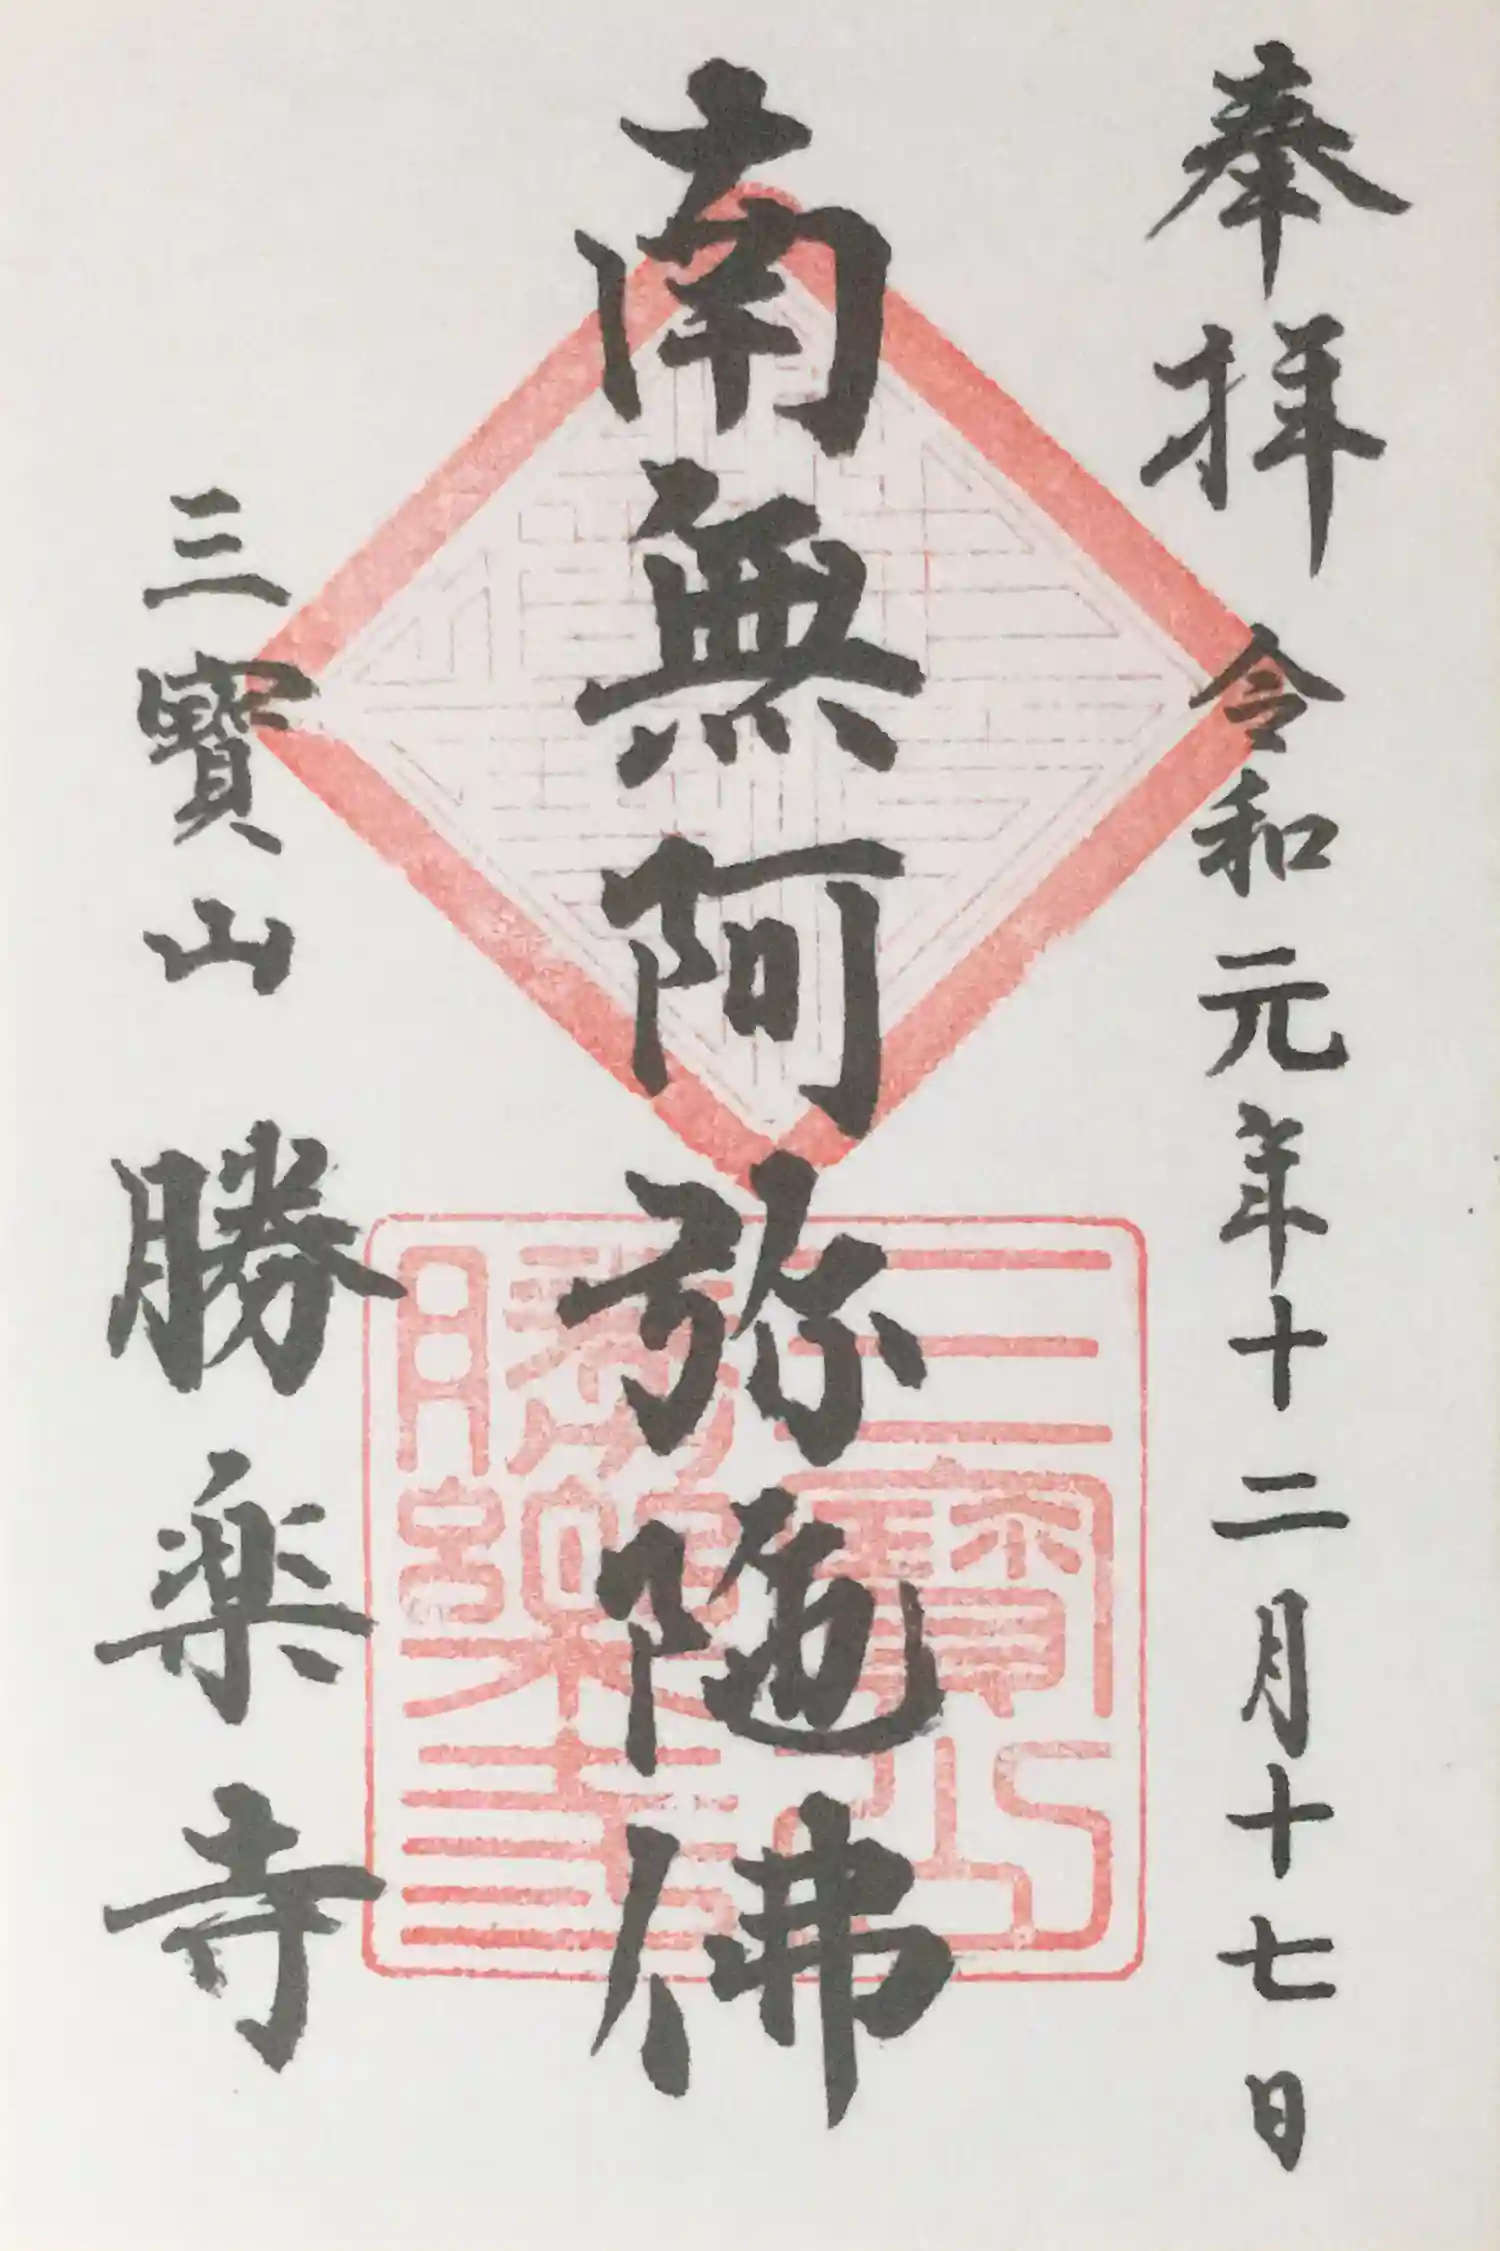 奉拝 令和元年十二月十七日
南無阿弥陀佛
三寶山 勝楽寺
三寶山
勝樂寺